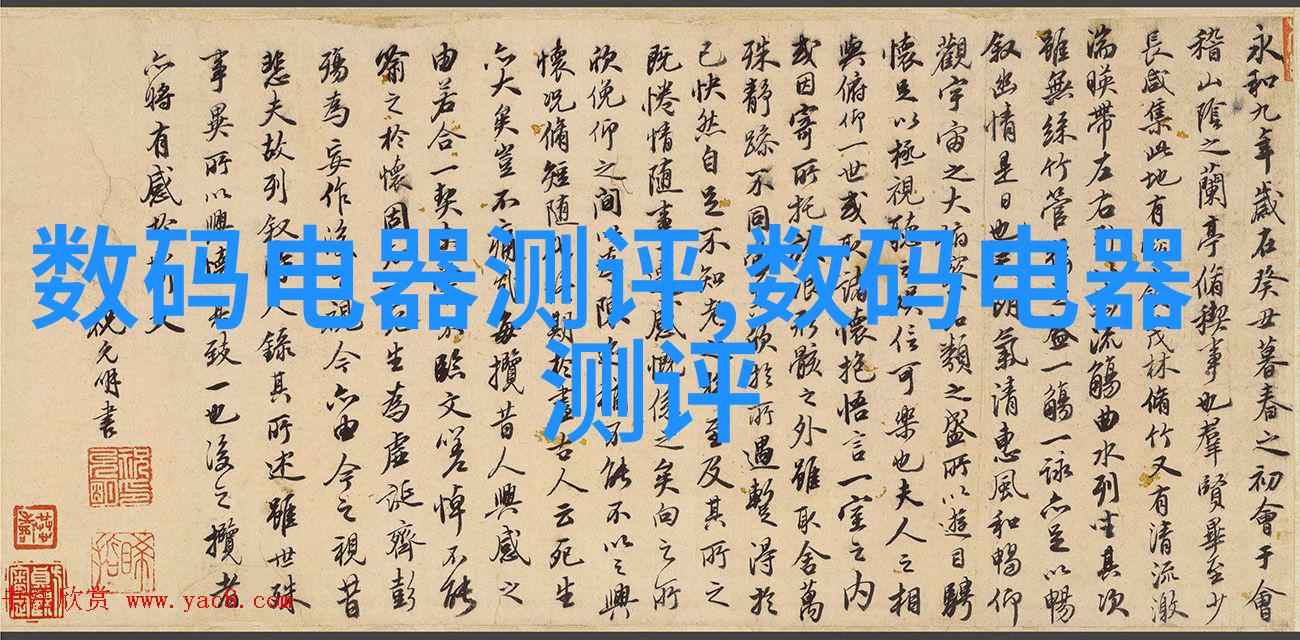 数码电器测评,数码电器
测评
永和九年歲在癸丑暮春之初會于會
稽山陰之蘭亭脩稧事也羣賢畢至少
長咸集此地有茂林脩竹又有清流激
湍暎帶左右流觴曲水列坐其次
雖無絲竹管一觴一詠亦足以暢
敘幽情是日也朗氣清惠風和暢仰
觀宇宙之大類之盛所以遊目騁
懷足以極視聽信可樂也夫人之相
與俯仰一世或取諸懷抱悟言一室之內
或因寄所托形骸之外雖取舍萬
殊靜躁不同欣於所遇暫得於
己快然自足不知老之至及其所之
既惓情隨事感慨係之矣向之所
欣俛仰之間陳迹猶不能不以之興
懷況脩短隨期於盡古人云死生
亦大矣豈不痛哉每攬昔人興感之
由若合一契不臨文嗟悼不能
喻之於懷固死生為虛誕齊彭
殤為妄作視今亦由今之視昔
悲夫故列敘人錄其所述雖世殊
事異所以興懷其致一也後之攬者
亦將有感於斯文
祝允明書
书法欣赏 www.yac8.com